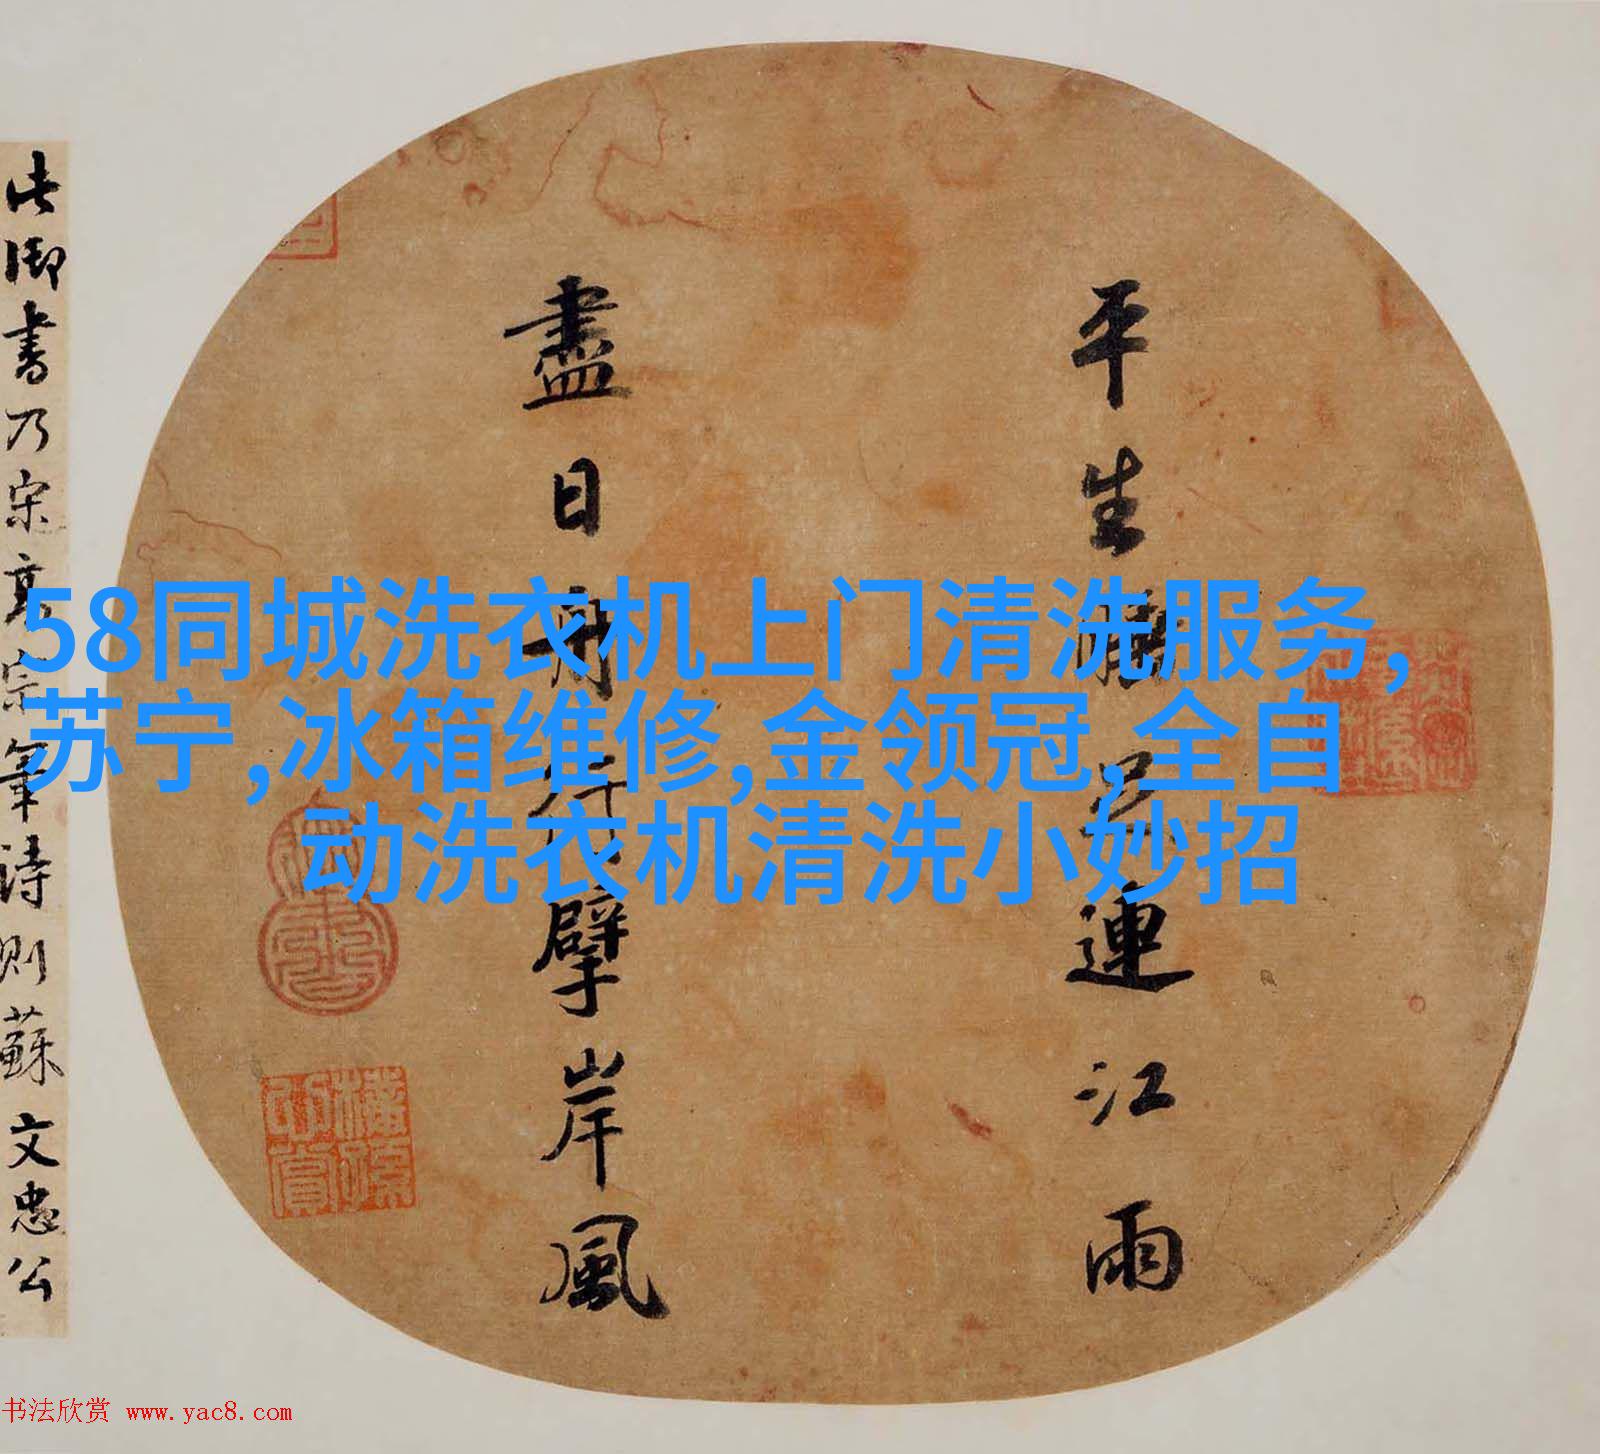 58同城洗衣机上门清洗服务,
苏宁,冰箱维修,金领冠,全自
动洗衣机清洗小妙招
平生 連江雨
盡日舟行擘岸風
此御書乃宋高宗筆詩則蘇文忠公
书法欣赏 www.yac8.com